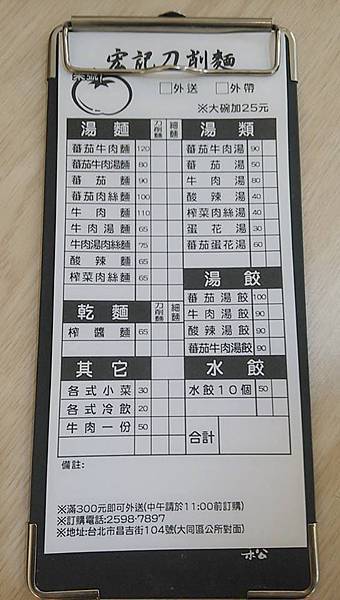 宏記刀削麵
□外送 □外帶
※大碗加25元
湯麵 刀削麵 細麵
蕃茄牛肉麵 120
蕃茄牛肉湯麵 80
蕃茄麵 90
蕃茄肉絲麵 100
牛肉麵 110
牛肉湯麵 65
牛肉湯肉絲麵 75
酸辣麵 65
榨菜肉絲麵 65
乾麵 刀削麵 細麵
榨醬麵 65
其它
各式小菜 30
各式冷飲 20
牛肉一份 50
湯類
蕃茄牛肉湯 90
蕃茄湯 50
牛肉湯 80
酸辣湯 40
榨菜肉絲湯 40
蛋花湯 30
蕃茄蛋花湯 60
湯餃
蕃茄湯餃 100
牛肉湯餃 90
酸辣湯餃 90
蕃茄牛肉湯餃
水餃
水餃10個 50
合計
備註:
※滿300元即可外送(中午請於11:00前訂購)
※訂購電話:2598-7897
※地址:台北市昌吉街104號(大同區公所對面)